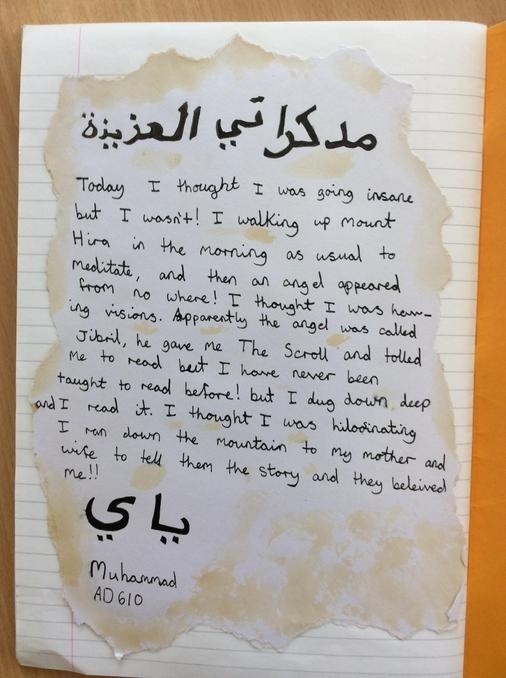 مدكراتي العزيزة
Today I thought I was going insane
but I wasn't! I walking up mount
Hira in the morning as usual to
meditate, and then an angel appeared
from no where! I thought I was haw-
ing visions. Apparently the angel was called
Jibril, he gave me The Scroll and tolled
me to read but I have never been
taught to read before! but I dug down deep
and I read it. I thought I was hilooinating
I ran down the mountain to my mother and
wife to tell them the story and they beleived
me!!
ياي
Muhammad
AD 610